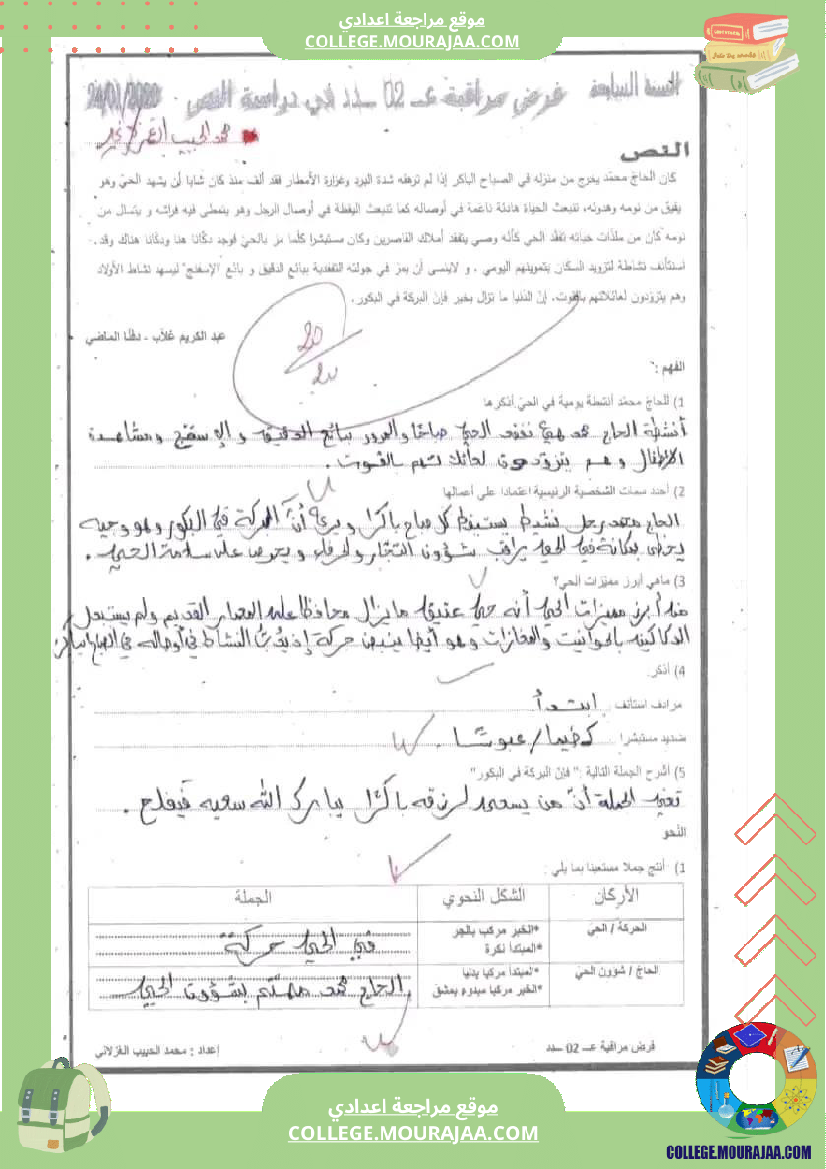 موقع مراجعة اعدادي
COLLEGE.MOURAJAA.COM
السنة السابعة فرض مراقبة عـ 02 ـدد في دراسة النص 24/01/2020
محمد الحبيب الغزلاني
النص
كان الحاجّ محمّد يخرج من منزله في الصباح الباكر إذا لم ترهقه شدة البرد وغزارة الأمطار فقد ألف منذ كان شابا أن يشهد الحيّ وهو
يفيق من نومه وهدوئه، تنبعث الحياة هادئة ناعمة في أوصاله كما تنبعث اليقظة في أوصال الرجل وهو يتمطى فيه فراشه و يتسال من
نومه كان من ملذّات حياته تفقّد الحي كأنّه وصي يتفقد أملاك القاصرين وكان مستبشرا كلّما مرّ بالحيّ فوجد دكّانا هنا ودكّانا هناك وقد
استأنف نشاطه لتزويد السكان بتموينهم اليومي . و لاينسى أن يمرّ في جولته التفقدية ببائع الدقيق و بائع "الإسفنج" ليسهد نشاط الأولاد
وهم يتزوّدون لعائلاتهم بالقوت. إنّ الدّنيا ما تزال بخير فإنّ البركة في البكور.
عبد الكريم غلاب - دفنّا الماضي
20
20
الفهم :
1) للحاجّ محمّد أنشطة يومية في الحيّ أذكرها
أنشطة الحاج محمد هي تفقد الحي صباحا والمرور ببائع الدقيق و الإسفنج ومشاهدة
الأطفال وهم يتزوّدون لعائلاتهم بالقوت.
2) أحدد سمات الشخصية الرئيسية اعتمادا على أعمالها
الحاج محمد رجل نشيط يستيقظ كل صباح باكرًا ويرى أنّ البركة في البكور وهو وجيه
يحظى بمكانة في الحي يراقب شؤون التجار والحرفاء ويحرص على سلامة الحي.
3) ماهي أبرز مميّزات الحي؟
من أبرز مميزات الحي أنه حي عتيق ما يزال محافظا على المعمار القديم ولم يستبدل
الدكاكين بالحوانيت والمغازات وهو أيضا ينبض حركة إذ يدبّ النشاط في أوصاله في الصباح الباكر
4) أذكر:
مرادف استأنف: ابتدأ
ضديد مستبشرا: كئيبا/عبوسًا.
5) أشرح الجملة التالية :" فإنّ البركة في البكور"
تعني الجملة أنّ من يسعى لرزقه باكرًا يبارك الله سعيه فيفلح.
النّحو
1) أنتج جملا مستعينا بما يلي :
الأركان الشكل النحوي الجملة
الحركة / الحيّ *الخبر مركب بالجر *المبتدأ نكرة في الحي حركة
الحاجّ / شؤون الحيّ *المبتدأ مركبا بدليا *الخبر مركبا الحاج محمد مهتم بشؤون الحي
فرض مراقبة عـ 02 ـدد إعداد : محمد الحبيب الغزلاني
موقع مراجعة اعدادي
COLLEGE.MOURAJAA.COM
COLLEGE.MOURAJAA.COM